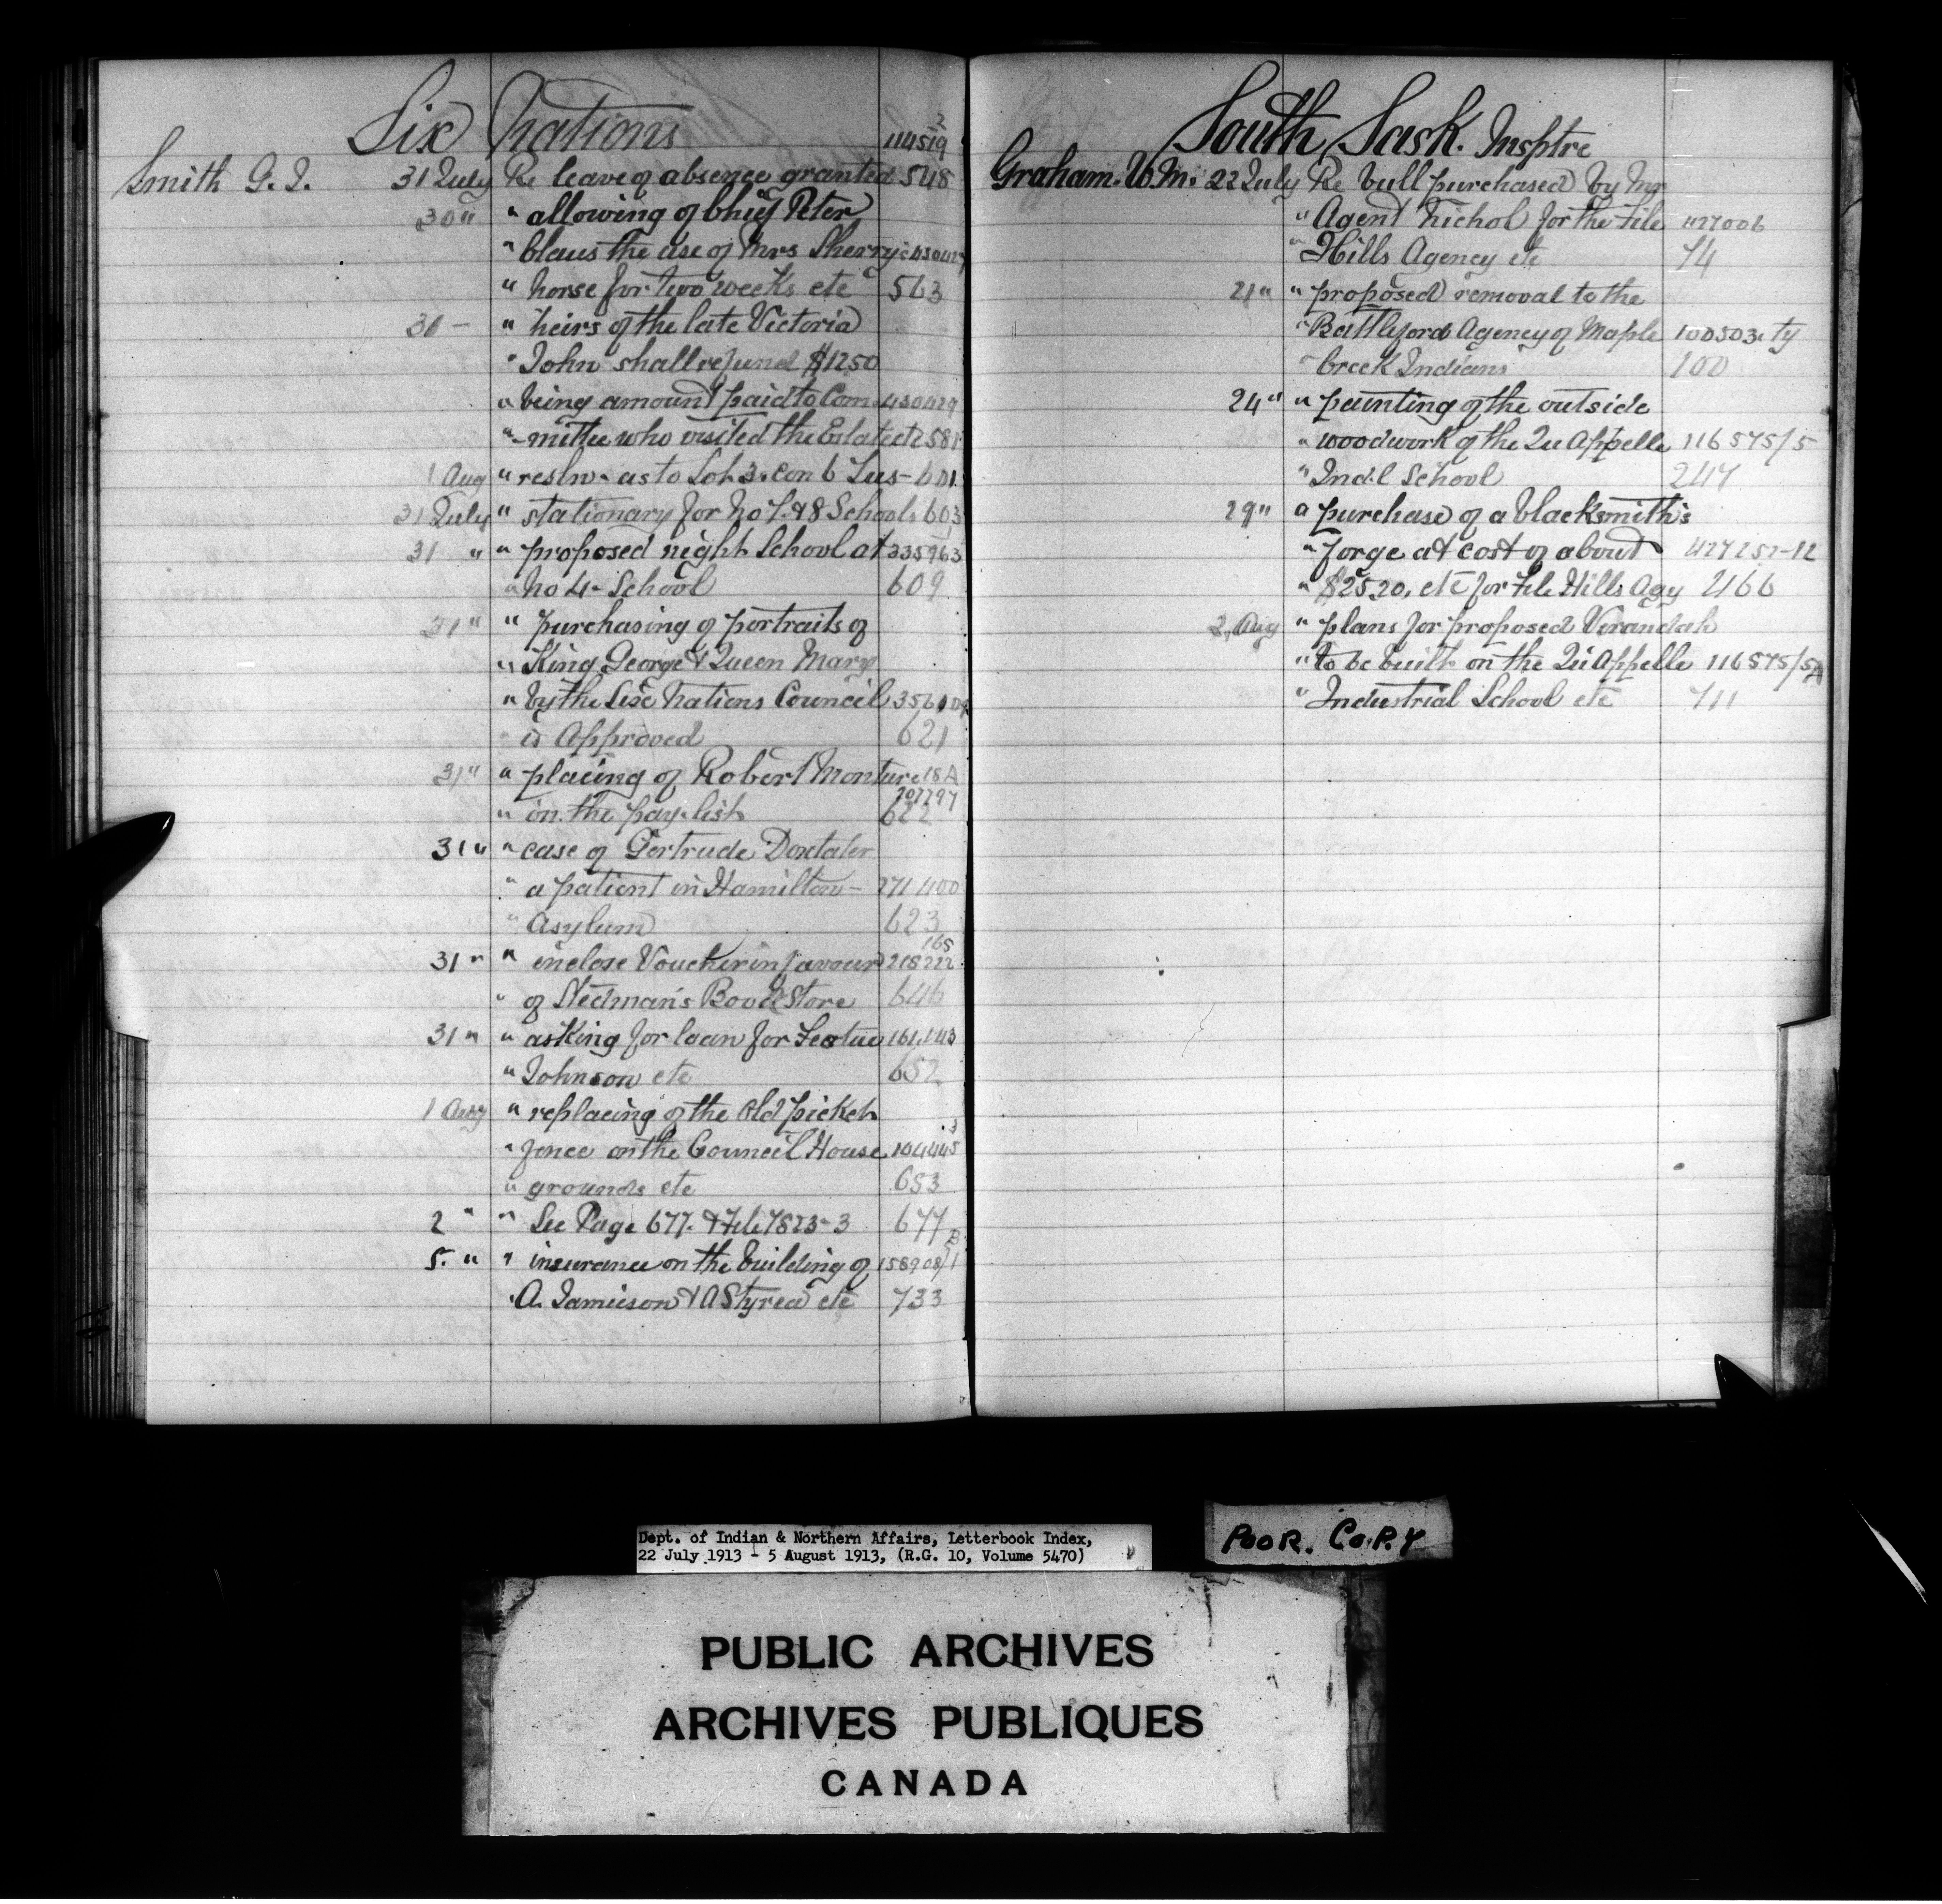 Six Nations 114519 2
Smith G. J. 31 July Re leave of absence granted 548
30 " " allowing of Chief Peter
" Claus the use of Mrs Sherry's 430427
" horse for two weeks etc 563
30 - " heirs of the late Victoria
" John shall refund $1250
" being amount paid to Com- 430429
" -mittee who visited the Estate etc 581
1 Aug " resln. as to Lot 3. Con 6 Tus- 601
31 July " stationary for No 7. & 8 Schools 603
31 " " proposed night School at 335963
" No 4 - School 609
31 " " purchasing of portraits of
" King George & Queen Mary
" by the Six Nations Council 356109
" is Approved 621
31 " " placing of Robert Monture 18A
" on the pay-list 207797
622
31 " " case of Gertrude Doxtater
" a patient in Hamilton - 271400
" Asylum 623
31 " " inclose Voucher in favour 218222 165
" of Nedman's Book Store 646
31 " " asking for loan for Festus 161,143
" Johnson etc 652
1 Aug " replacing of the old picket
" fence on the Council House 104445 3
" grounds etc 653
2 " " See Page 677. & File 7823-3 677
5. " " insurance on the building of 158908/1 B
" A. Jamieson & A Styres etc 733
South Sask. Insptre
Graham. W. M. 22 July Re bull purchased by Mr
" Agent Nichol for the File 427006
" Hills Agency etc 74
21 " " proposed removal to the
" Battleford Agency of Maple 100503. ty
" Creek Indians 100
24 " " painting of the outside
" woodwork of the Qu Appelle 116575/5
" Ind.l School 247
29 " " purchase of a blacksmith's
" forge at cost of about 427252-12
" $25.20, etc for File Hills Agy 466
2, Aug " plans for proposed Verandah
" to be built on the Qu Appelle 116575/5A
" Industrial School etc 711
Dept. of Indian & Northern Affairs, Letterbook Index,
22 July 1913 - 5 August 1913, (R.G. 10, Volume 5470)
POOR. COPY
PUBLIC ARCHIVES
ARCHIVES PUBLIQUES
CANADA